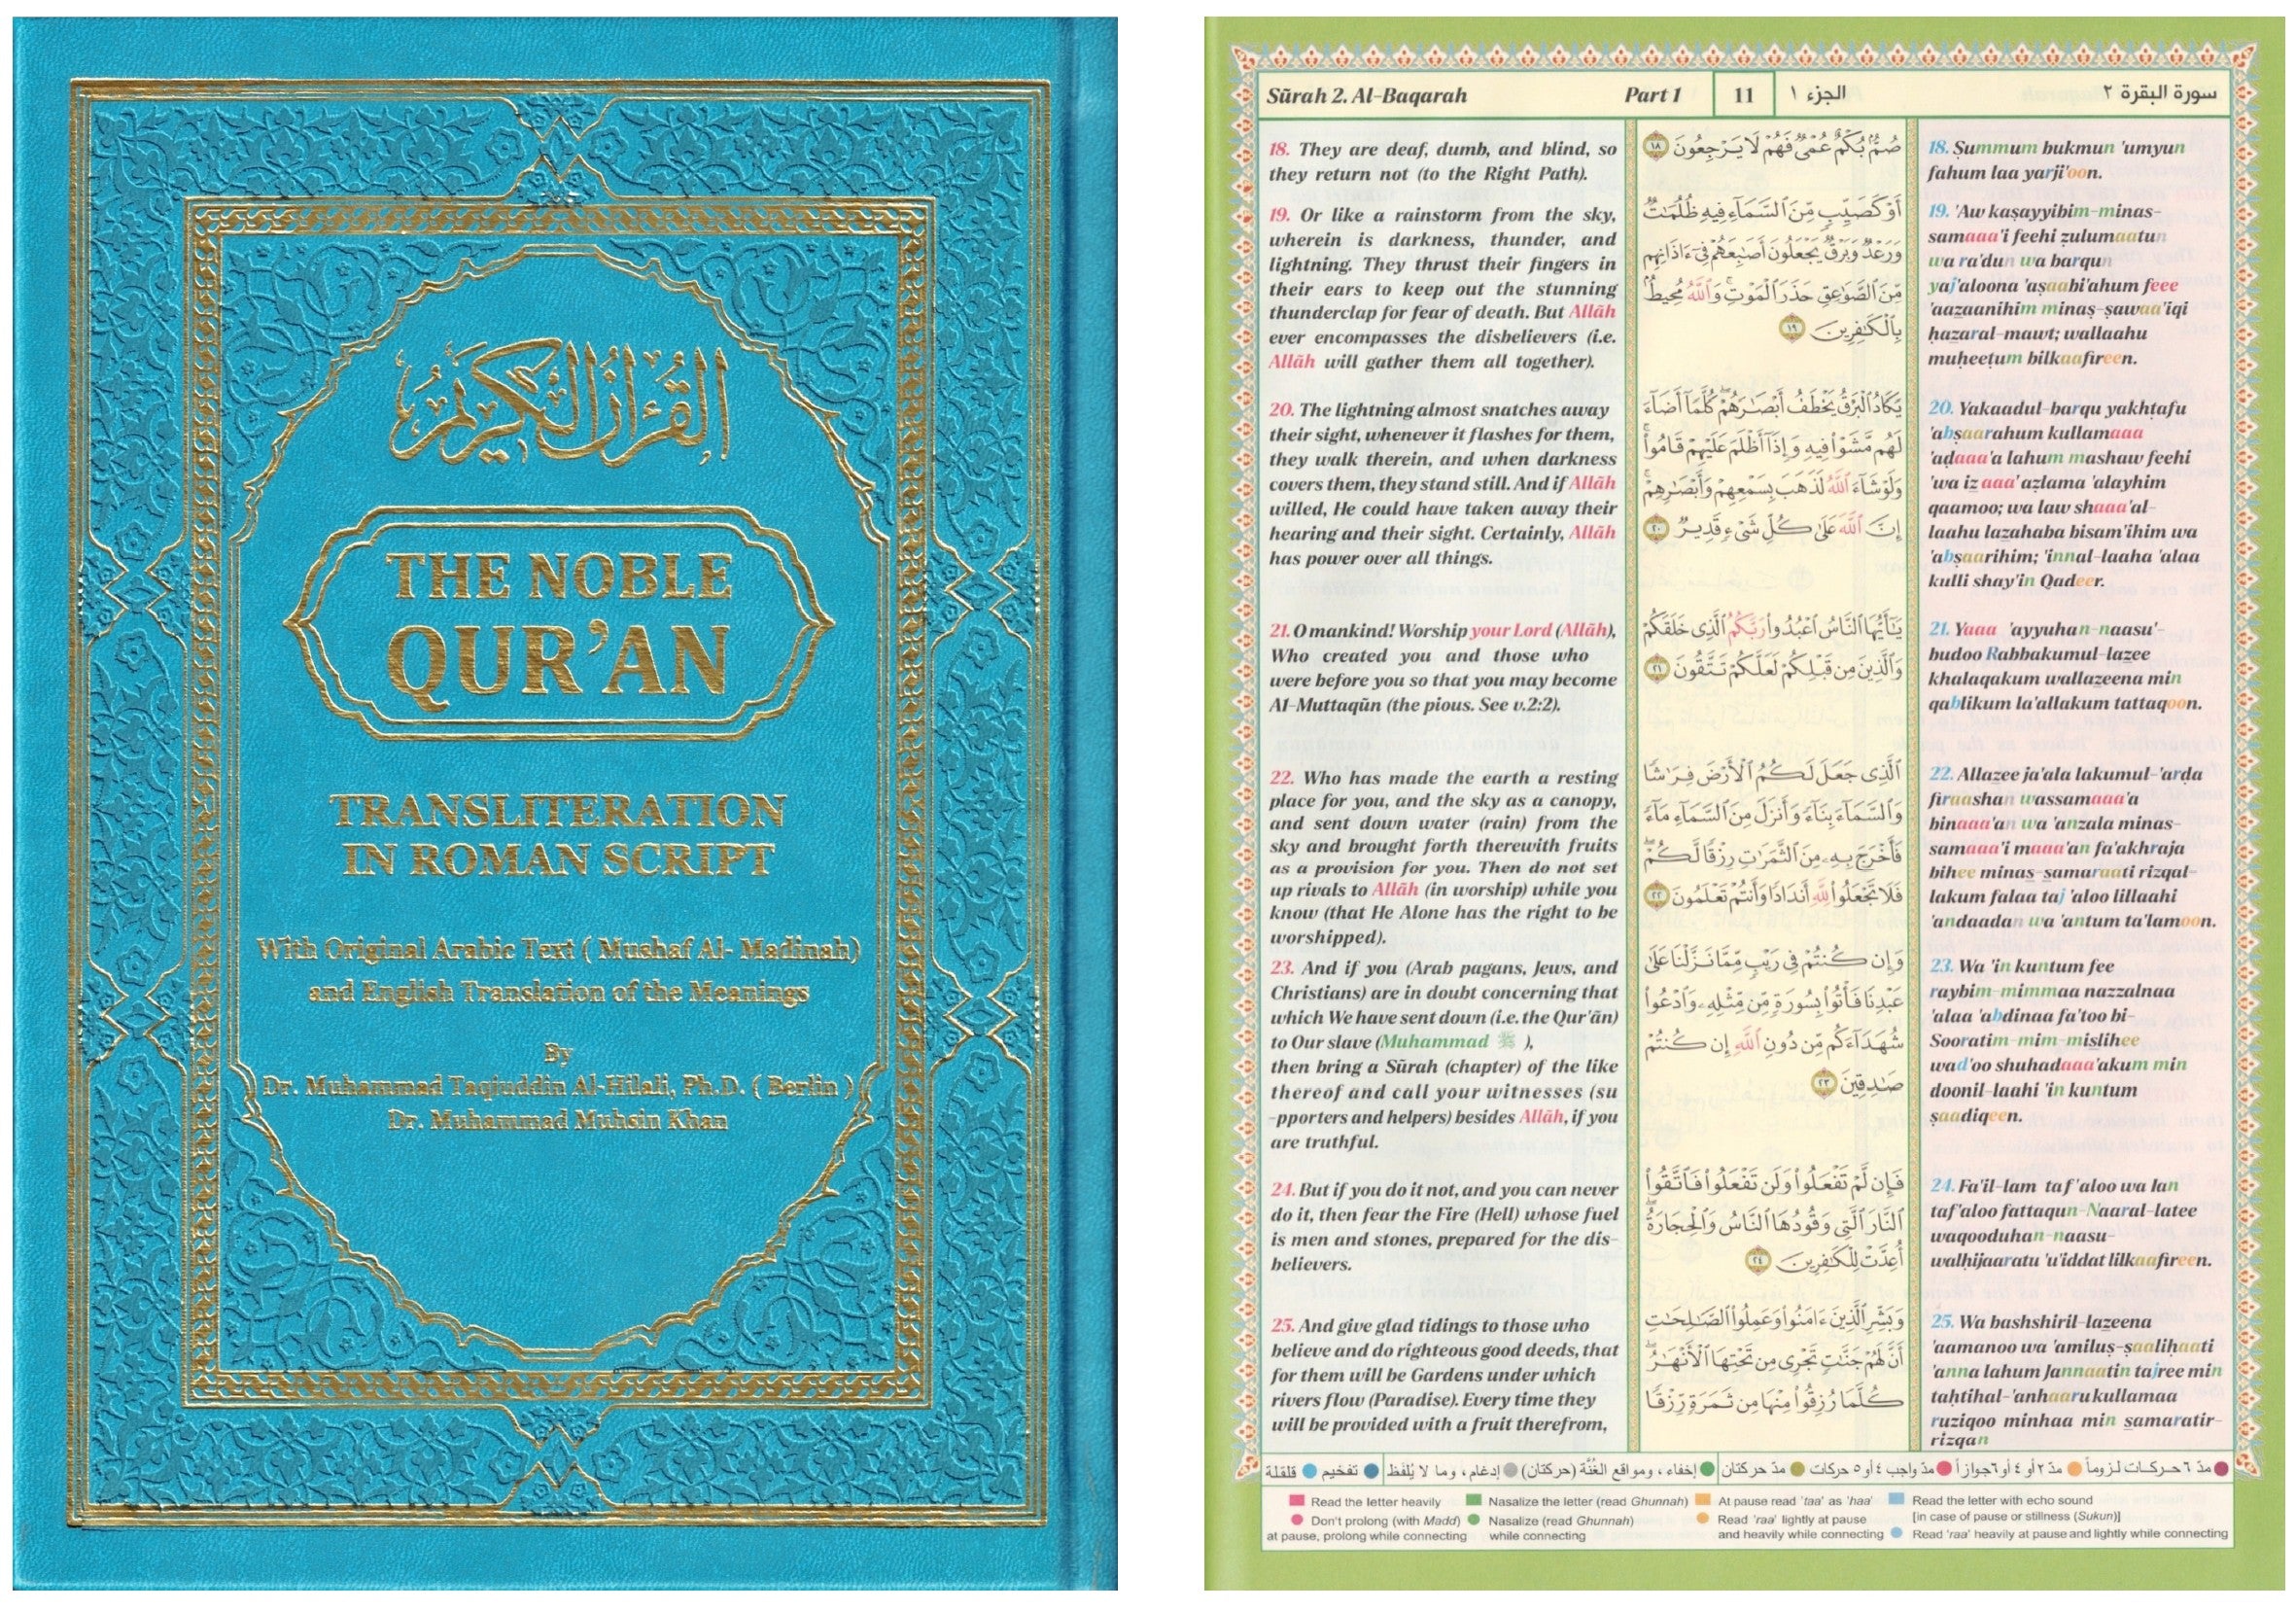 القرآن الكريم
THE NOBLE
QUR'AN
TRANSLITERATION
IN ROMAN SCRIPT
With Original Arabic Text ( Mushaf Al- Madinah)
and English Translation of the Meanings
By
Dr. Muhammad Taqiuddin Al-Hilali, Ph.D. ( Berlin )
Dr. Muhammad Muhsin Khan
Sūrah 2. Al-Baqarah Part 1 11 الجزء ١ سورة البقرة ٢
18. They are deaf, dumb, and blind, so
they return not (to the Right Path).
19. Or like a rainstorm from the sky,
wherein is darkness, thunder, and
lightning. They thrust their fingers in
their ears to keep out the stunning
thunderclap for fear of death. But Allāh
ever encompasses the disbelievers (i.e.
Allāh will gather them all together).
20. The lightning almost snatches away
their sight, whenever it flashes for them,
they walk therein, and when darkness
covers them, they stand still. And if Allāh
willed, He could have taken away their
hearing and their sight. Certainly, Allāh
has power over all things.
21. O mankind! Worship your Lord (Allāh),
Who created you and those who
were before you so that you may become
Al-Muttaqūn (the pious. See v.2:2).
22. Who has made the earth a resting
place for you, and the sky as a canopy,
and sent down water (rain) from the
sky and brought forth therewith fruits
as a provision for you. Then do not set
up rivals to Allāh (in worship) while you
know (that He Alone has the right to be
worshipped).
23. And if you (Arab pagans, Jews, and
Christians) are in doubt concerning that
which We have sent down (i.e. the Qur'ān)
to Our slave (Muhammad ﷺ ),
then bring a Sūrah (chapter) of the like
thereof and call your witnesses (su
-pporters and helpers) besides Allāh, if you
are truthful.
24. But if you do it not, and you can never
do it, then fear the Fire (Hell) whose fuel
is men and stones, prepared for the dis-
believers.
25. And give glad tidings to those who
believe and do righteous good deeds, that
for them will be Gardens under which
rivers flow (Paradise). Every time they
will be provided with a fruit therefrom,
صُمٌّۢ بُكْمٌ عُمْىٌ فَهُمْ لَا يَرْجِعُونَ ١٨
أَوْ كَصَيِّبٍ مِّنَ ٱلسَّمَآءِ فِيهِ ظُلُمَٰتٌ
وَرَعْدٌ وَبَرْقٌ يَجْعَلُونَ أَصَٰبِعَهُمْ فِىٓ ءَاذَانِهِم
مِّنَ ٱلصَّوَٰعِقِ حَذَرَ ٱلْمَوْتِ ۚ وَٱللَّهُ مُحِيطٌۢ
بِٱلْكَٰفِرِينَ ١٩
يَكَادُ ٱلْبَرْقُ يَخْطَفُ أَبْصَٰرَهُمْ ۖ كُلَّمَآ أَضَآءَ
لَهُم مَّشَوْا۟ فِيهِ وَإِذَآ أَظْلَمَ عَلَيْهِمْ قَامُوا۟ ۚ
وَلَوْ شَآءَ ٱللَّهُ لَذَهَبَ بِسَمْعِهِمْ وَأَبْصَٰرِهِمْ ۚ
إِنَّ ٱللَّهَ عَلَىٰ كُلِّ شَىْءٍ قَدِيرٌ ٢٠
يَٰٓأَيُّهَا ٱلنَّاسُ ٱعْبُدُوا۟ رَبَّكُمُ ٱلَّذِى خَلَقَكُمْ
وَٱلَّذِينَ مِن قَبْلِكُمْ لَعَلَّكُمْ تَتَّقُونَ ٢١
ٱلَّذِى جَعَلَ لَكُمُ ٱلْأَرْضَ فِرَٰشًا
وَٱلسَّمَآءَ بِنَآءً وَأَنزَلَ مِنَ ٱلسَّمَآءِ مَآءً
فَأَخْرَجَ بِهِۦ مِنَ ٱلثَّمَرَٰتِ رِزْقًا لَّكُمْ ۖ
فَلَا تَجْعَلُوا۟ لِلَّهِ أَندَادًا وَأَنتُمْ تَعْلَمُونَ ٢٢
وَإِن كُنتُمْ فِى رَيْبٍ مِّمَّا نَزَّلْنَا عَلَىٰ
عَبْدِنَا فَأْتُوا۟ بِسُورَةٍ مِّن مِّثْلِهِۦ وَٱدْعُوا۟
شُهَدَآءَكُم مِّن دُونِ ٱللَّهِ إِن كُنتُمْ
صَٰدِقِينَ ٢٣
فَإِن لَّمْ تَفْعَلُوا۟ وَلَن تَفْعَلُوا۟ فَٱتَّقُوا۟
ٱلنَّارَ ٱلَّتِى وَقُودُهَا ٱلنَّاسُ وَٱلْحِجَارَةُ ۖ
أُعِدَّتْ لِلْكَٰفِرِينَ ٢٤
وَبَشِّرِ ٱلَّذِينَ ءَامَنُوا۟ وَعَمِلُوا۟ ٱلصَّٰلِحَٰتِ
أَنَّ لَهُمْ جَنَّٰتٍ تَجْرِى مِن تَحْتِهَا ٱلْأَنْهَٰرُ ۖ
كُلَّمَا رُزِقُوا۟ مِنْهَا مِن ثَمَرَةٍ رِّزْقًا
18. Ṣummum bukmun 'umyun
fahum laa yarji'oon.
19. 'Aw kaṣayyibim-minas-
samaaa'i feehi ẓulumaatun
wa ra'dun wa barqun
yaj'aloona 'aṣaabi'ahum feee
'aaz̲aanihim minaṣ-ṣawaa'iqi
ḥaz̲aral-mawt; wallaahu
muḥeeṭum bilkaafireen.
20. Yakaadul-barqu yakhṭafu
'abṣaarahum kullamaaa
'aḍaaa'a lahum mashaw feehi
'wa iz̲ aaa' aẓlama 'alayhim
qaamoo; wa law shaaa'al-
laahu laz̲ahaba bisam'ihim wa
'abṣaarihim; 'innal-laaha 'alaa
kulli shay'in Qadeer.
21. Yaaa 'ayyuhan-naasu'-
budoo Rabbakumul-laz̲ee
khalaqakum wallaz̲eena min
qablikum la'allakum tattaqoon.
22. Allaz̲ee ja'ala lakumul-'arḍa
firaashan wassamaaa'a
binaaa'an wa 'anzala minas-
samaaa'i maaa'an fa'akhraja
bihee minas̲-s̲amaraati rizqal-
lakum falaa taj 'aloo lillaahi
'andaadan wa 'antum ta'lamoon.
23. Wa 'in kuntum fee
raybim-mimmaa nazzalnaa
'alaa 'abdinaa fa'too bi-
Sooratim-mim-mis̲lihee
wad'oo shuhadaaa'akum min
doonil-laahi 'in kuntum
ṣaadiqeen.
24. Fa'il-lam taf 'aloo wa lan
taf'aloo fattaqun-Naaral-latee
waqooduhan-naasu-
walḥijaaratu 'u'iddat lilkaafireen.
25. Wa bashshiril-laz̲eena
'aamanoo wa 'amiluṣ-ṣaaliḥaati
'anna lahum Jannaatin tajree min
taḥtihal-'anhaaru kullamaa
ruziqoo minhaa min s̲amaratir-
rizqan
مدّ ٦ حركات لزوماً مدّ ٢ أو ٤ أو ٦ جوازاً مدّ واجب ٤ أو ٥ حركات مدّ حركتان إخفاء، ومواقع الغُنَّة (حركتان) إدغام، وما لا يُلفَظ تفخيم قلقلة
Read the letter heavily Nasalize the letter (read Ghunnah) At pause read 'taa' as 'haa' Read the letter with echo sound
Don't prolong (with Madd) Nasalize (read Ghunnah) Read 'raa' lightly at pause [in case of pause or stillness (Sukun)]
at pause, prolong while connecting while connecting and heavily while connecting Read 'raa' heavily at pause and lightly while connecting